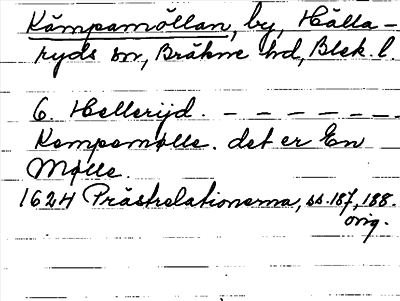 Kämpamöllan, by, Hälla-
ryds sn, Bräkne hd, Blek. l.
6. Hellerijd. – – – – – –
Kempemølle. det er En
Mølle.
1624 Prästrelationerna, ss. 187, 188.
orig.